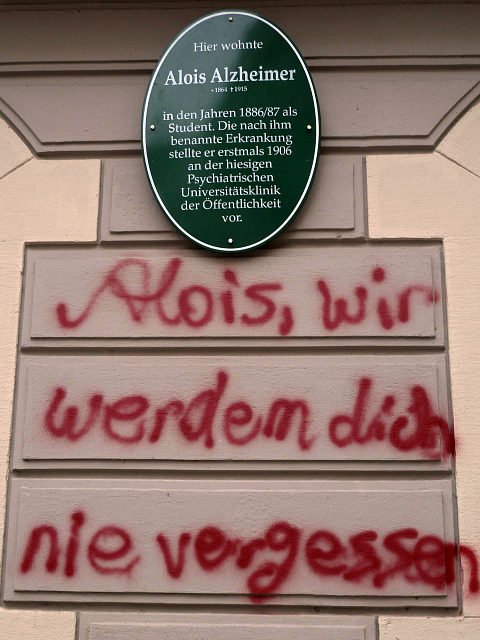 Hier wohnte
Alois Alzheimer
* 1864 † 1915
in den Jahren 1886/87 als
Student. Die nach ihm
benannte Erkrankung
stellte er erstmals 1906
an der hiesigen
Psychiatrischen
Universitätsklinik
der Öffentlichkeit
vor.
Alois, wir
werden dich
nie vergessen